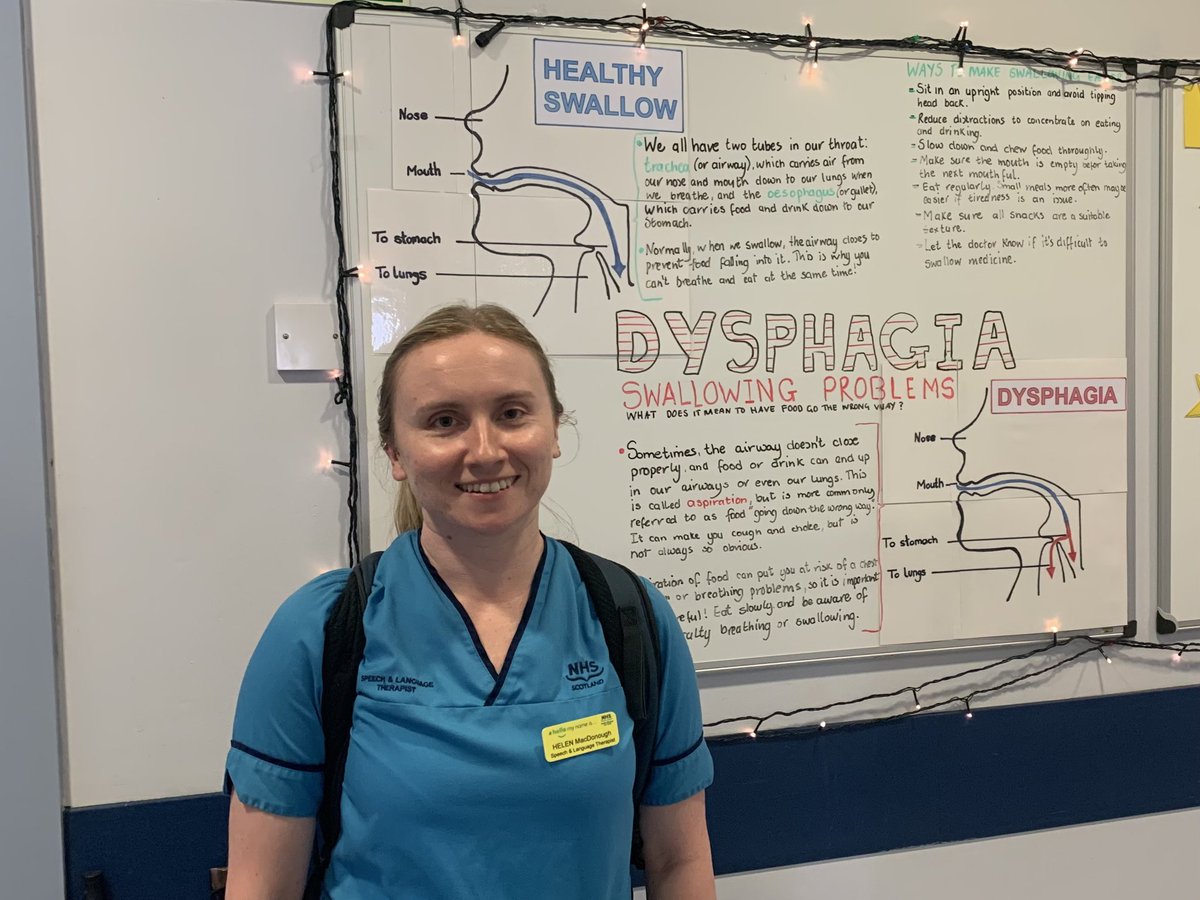 HEALTHY
SWALLOW
Nose
Mouth
To stomach
To lungs
We all have two tubes in our throat:
trachea (or airway), which carries air from
our nose and mouth down to our lungs when
we breathe, and the oesophagus (or gullet),
which carries food and drink down to our
stomach.
Normally, when we swallow, the airway closes to
prevent food falling into it. This is why you
can't breathe and eat at the same time!
WAYS TO MAKE SWALLOWING
Sit in an upright position and avoid tipping
head back.
Reduce distractions to concentrate on eating
and drinking.
Slow down and chew food thoroughly.
Make sure the mouth is empty before taking
the next mouthful.
Eat regularly. Small meals more often may be
easier if tiredness is an issue.
Make sure all snacks are a suitable
texture.
Let the doctor know if it's difficult to
swallow medicine.
DYSPHAGIA
SWALLOWING PROBLEMS
WHAT DOES IT MEAN TO HAVE FOOD GO THE WRONG WAY?
Sometimes, the airway doesn't close
properly, and food or drink can end up
in our airways or even our lungs. This
is called aspiration, but is more commonly
referred to as food "going down the wrong way."
It can make you cough and choke, but is
not always so obvious.
of food can put you at risk of a chest
or breathing problems, so it is important
Eat slowly and be aware of
breathing or swallowing.
DYSPHAGIA
Nose
Mouth
To stomach
To lungs
SPEECH & LANGUAGE
THERAPIST
NHS
SCOTLAND
hello my name is...
NHS
HELEN MacDonough
Speech & Language Therapist